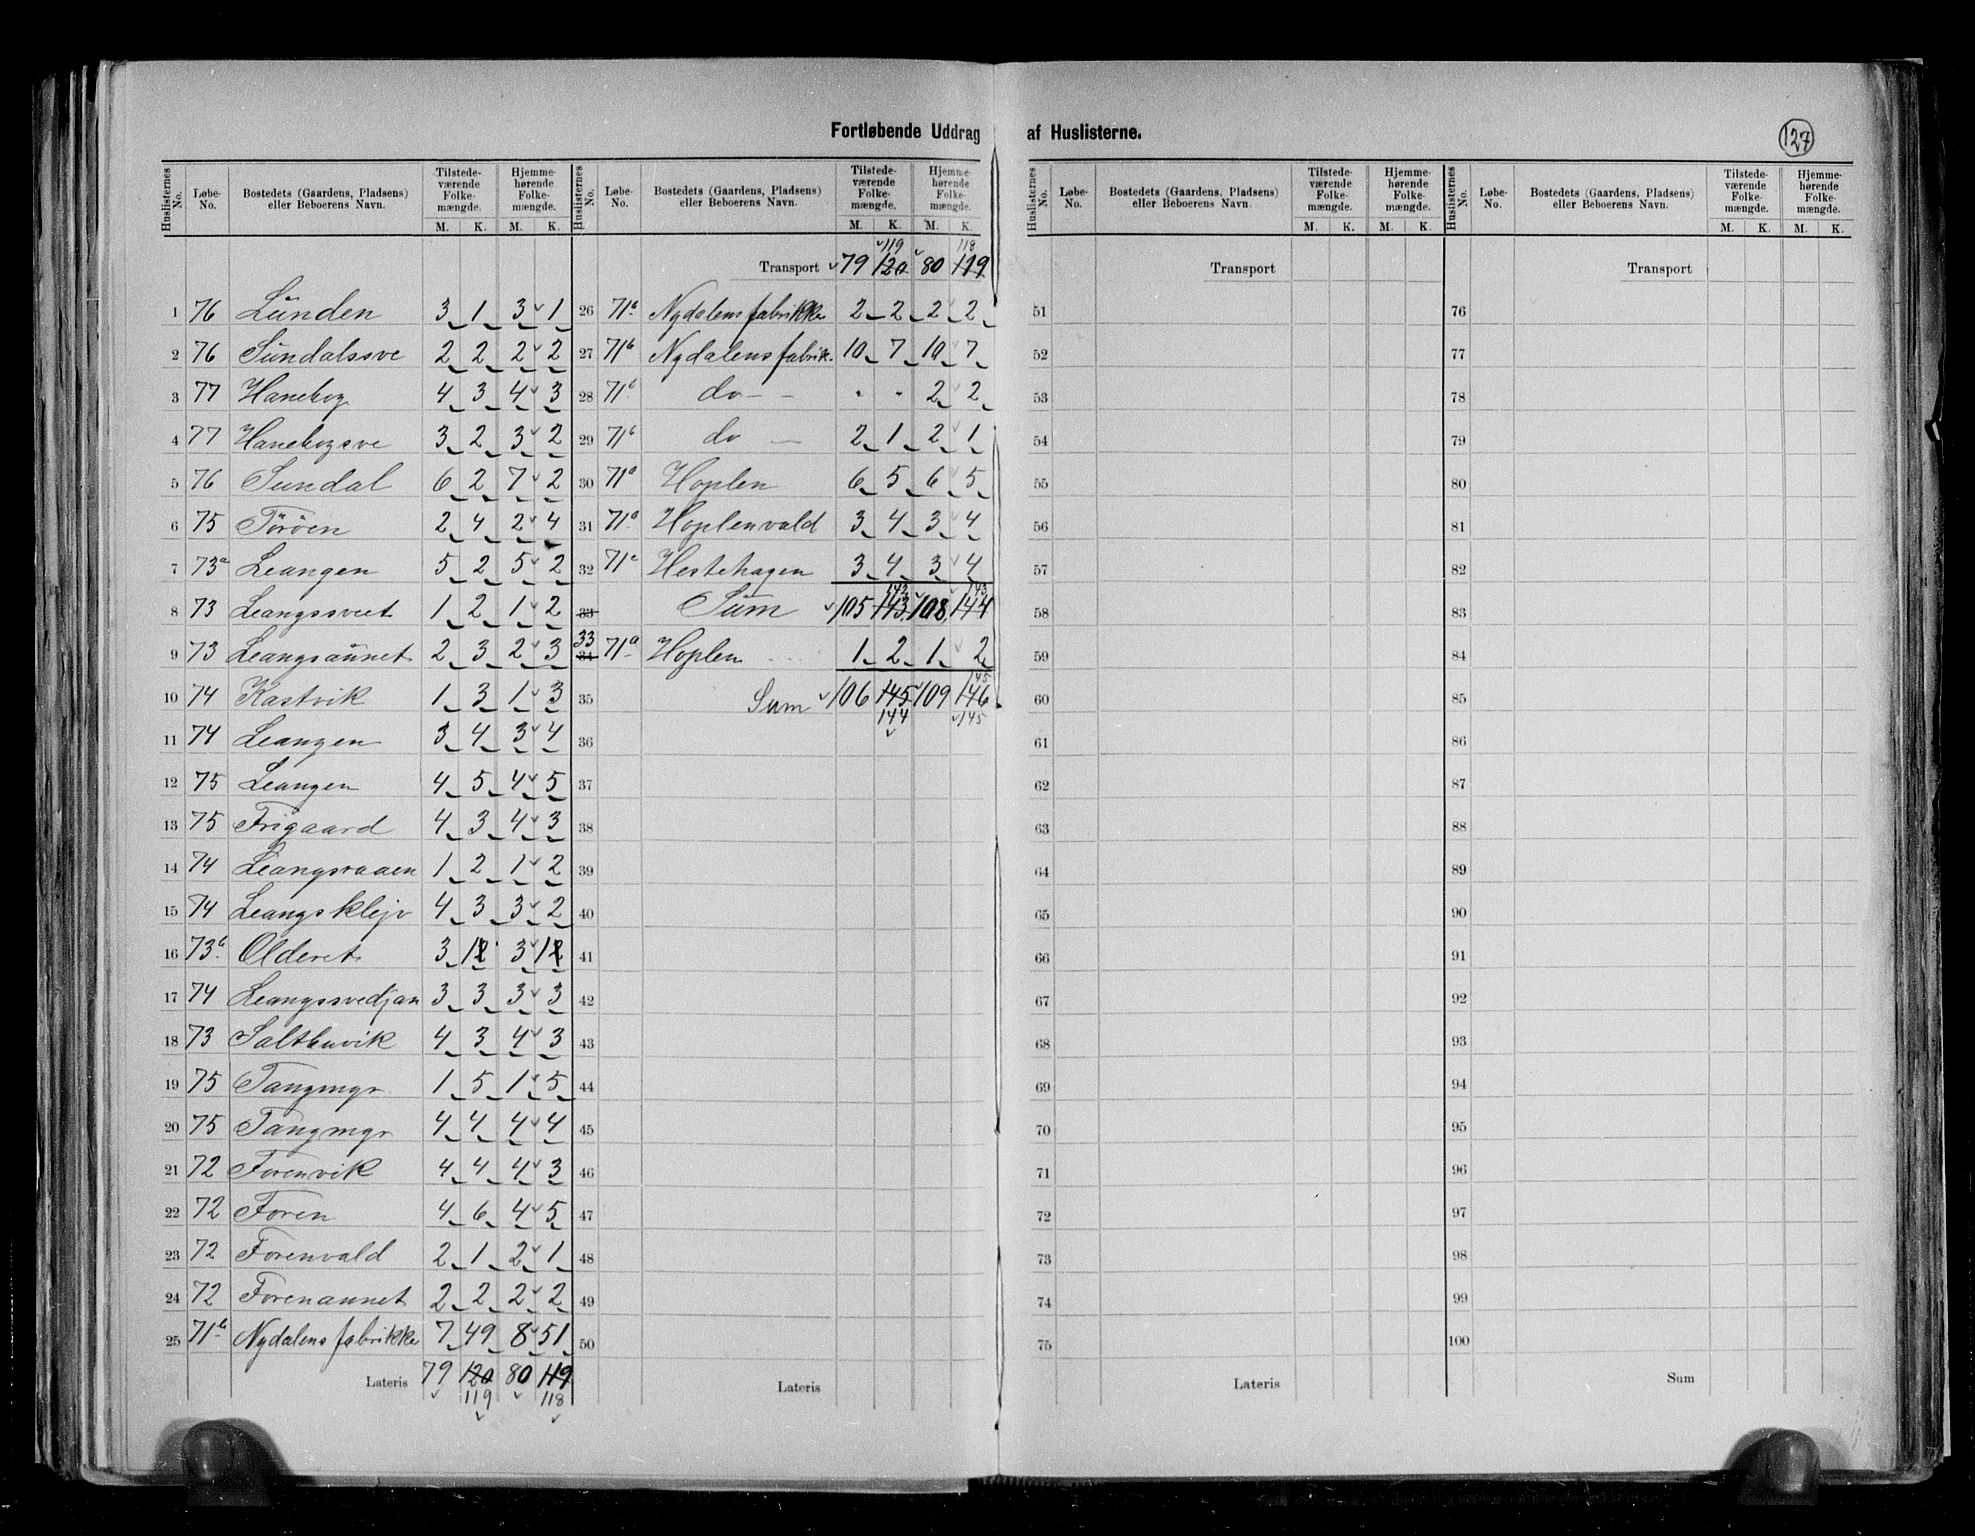 Fortløbende Uddrag af Huslisterne.
127
Huslisternes No. Løbe-No. Bostedets (Gaardens, Pladsens) eller Beboerens Navn. Tilstedeværende Folkemængde. M. K. Hjemmehørende Folkemængde. M. K.
1 76 Lunden 3 1 3 1
2 76 Sundalssve 2 2 2 2
3 77 Hanebog 4 3 4 3
4 77 Hanebogsve 3 2 3 2
5 76 Sundal 6 2 7 2
6 75 Tørøen 2 4 2 4
7 73a Leangen 5 2 5 2
8 73 Leangssveet 1 2 1 2
9 73 Leangsaunet 2 3 2 3
10 74 Kastvik 1 3 1 3
11 74 Leangen 3 4 3 4
12 75 Leangen 4 5 4 5
13 75 Frigaard 4 3 4 3
14 74 Leangsraaen 1 2 1 2
15 74 Leangsklejv 4 3 3 2
16 73b Olderet 3 1 3 1
17 74 Leangssvedjan 3 3 3 3
18 73 Saltbuvik 4 3 4 3
19 75 Tangmyr 1 5 1 5
20 75 Tangmyr 4 4 4 4
21 72 Forenvik 4 4 4 3
22 72 Foren 4 6 4 5
23 72 Forenvald 2 1 2 1
24 72 Forenaunet 2 2 2 2
25 71b Nydalens fabrikke 7 49 8 51
Lateris 79 120 80 119
119 118
Huslisternes No. Løbe-No. Bostedets (Gaardens, Pladsens) eller Beboerens Navn. Tilstedeværende Folkemængde. M. K. Hjemmehørende Folkemængde. M. K.
119 118
Transport 79 120 80 119
26 71b Nydalens fabrikke 2 2 2 2
27 71b Nydalens fabrik. 10 7 10 7
28 71b do - - " " 2 2
29 71b do - 2 1 2 1
30 71a Hoplen 6 5 6 5
31 71a Hoplenvald 3 4 3 4
32 71c Hestehagen 3 4 3 4
143 143
33 Sum 105 143 108 144
33 34 71a Hoplen 1 2 1 2
145
35 Sum 106 145 109 146
144 145
36
37
38
39
40
41
42
43
44
45
46
47
48
49
50
Lateris
Huslisternes No. Løbe-No. Bostedets (Gaardens, Pladsens) eller Beboerens Navn. Tilstedeværende Folkemængde. M. K. Hjemmehørende Folkemængde. M. K.
Transport
51
52
53
54
55
56
57
58
59
60
61
62
63
64
65
66
67
68
69
70
71
72
73
74
75
Lateris
Huslisternes No. Løbe-No. Bostedets (Gaardens, Pladsens) eller Beboerens Navn. Tilstedeværende Folkemængde. M. K. Hjemmehørende Folkemængde. M. K.
Transport
76
77
78
79
80
81
82
83
84
85
86
87
88
89
90
91
92
93
94
95
96
97
98
99
100
Sum